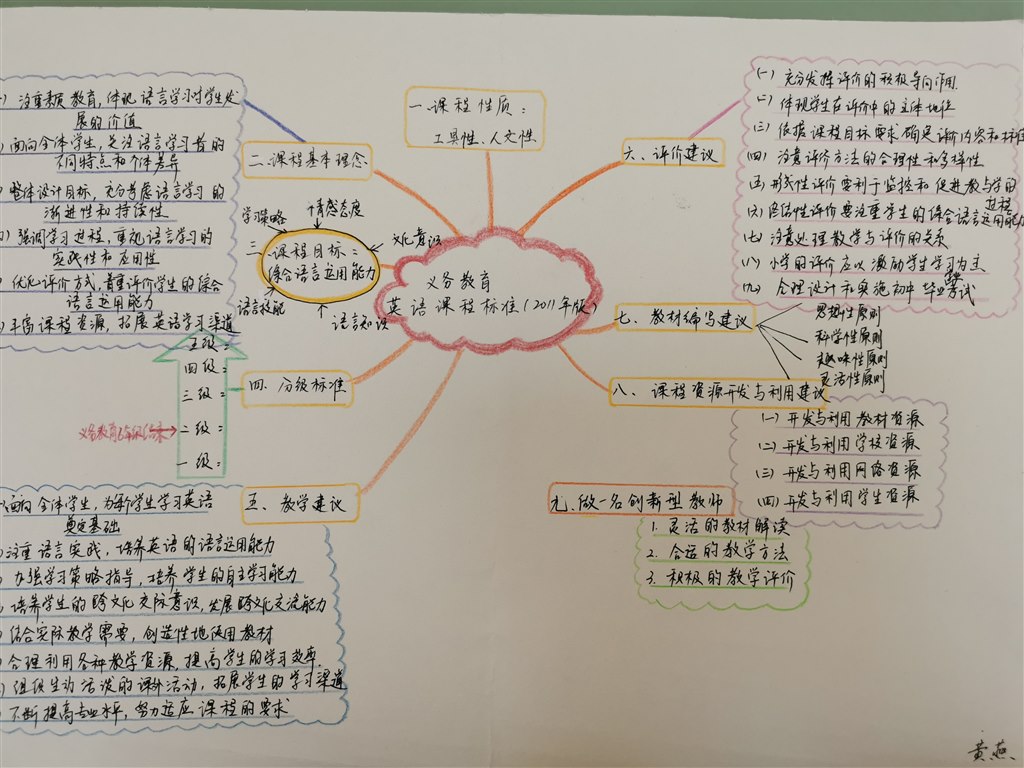 义务教育
英语课程标准(2011年版)
一.课程性质:
工具性、人文性
二.课程基本理念
注重素质教育,体现语言学习对学生发
展的价值
面向全体学生,关注语言学习者的
不同特点和个体差异
整体设计目标,充分考虑语言学习的
渐进性和持续性
强调学习过程,重视语言学习的
实践性和应用性
优化评价方式,着重评价学生的综合
语言运用能力
丰富课程资源,拓展英语学习渠道
三.课程目标:
综合语言运用能力
学习策略
情感态度
文化意识
语言技能
语言知识
四.分级标准
五级:
四级:
三级:
二级:
一级:
义务教育6年级结束
五、教学建议
面向全体学生,为每个学生学习英语
奠定基础
注重语言实践,培养英语的语言运用能力
加强学习策略指导,培养学生的自主学习能力
培养学生的跨文化交际意识,发展跨文化交流能力
结合实际教学需要,创造性地使用教材
合理利用各种教学资源,提高学生的学习效率.
组织生动活泼的课外活动,拓展学生的学习渠道
不断提高专业水平,努力适应课程的要求
六、评价建议
(一) 充分发挥评价的积极导向作用
(二) 体现学生在评价中的主体地位
(三) 依据课程目标要求确定评价内容和标准
(四) 注意评价方法的合理性和多样性
(五) 形成性评价要利于监控和促进教与学的过程
(六) 总结性评价要注重学生的综合语言运用能力
(七) 注意处理教学与评价的关系
(八) 小学的评价应以激励学生学习为主
(九) 合理设计和实施初中毕业考试
七、教材编写建议
思想性原则
科学性原则
趣味性原则
灵活性原则
八、课程资源开发与利用建议
(一) 开发与利用教材资源
(二) 开发与利用学校资源
(三) 开发与利用网络资源
(四) 开发与利用学生资源
九.做一名创新型教师
1. 灵活的教材解读
2. 合适的教学方法
3. 积极的教学评价
黄燕